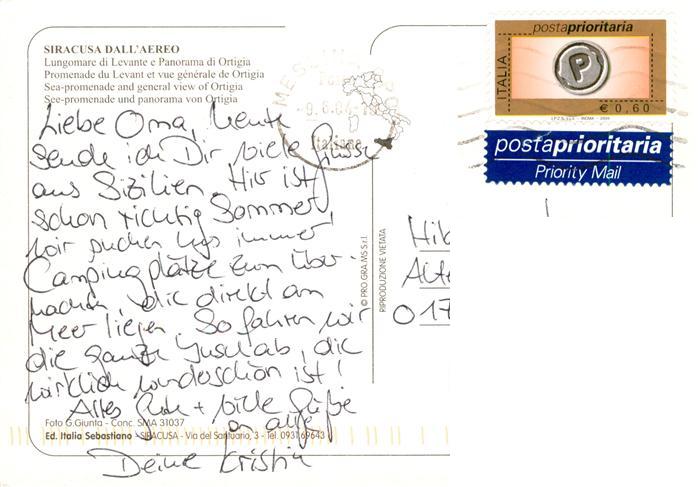 SIRACUSA DALL'AEREO
Lungomare di Levante e Panorama di Ortigia
Promenade du Levant et vue générale de Ortigia
Sea-promenade and general view of Ortigia
See-promenade und panorama von Ortigia
Liebe Oma, heute
sende ich Dir viele Grüsse
aus Sizilien. Hier ist
schon richtig Sommer,
wir suchen uns immer
Campingplätze zum Über-
nachten, die direkt am
Meer liegen. So fahren wir
die ganze Insel ab, die
wirklich wunderschön ist!
Alles Gute + viele Grüße
an alle
Deine Kristin
Foto G.Giunta - Conc. SMA 31037
Ed. Italia Sebastiano - SIRACUSA - Via del Santuario, 3 - Tel. 0931 69643
© PRO.GRA.MS S.r.l.
RIPRODUZIONE VIETATA
MESSINA
9.8.04
Italiane
ITALIA
postaprioritaria
P
€ 0,60
I.P.Z.S. S.p.A. - ROMA - 2004
postaprioritaria
Priority Mail
Hil
Alte
017